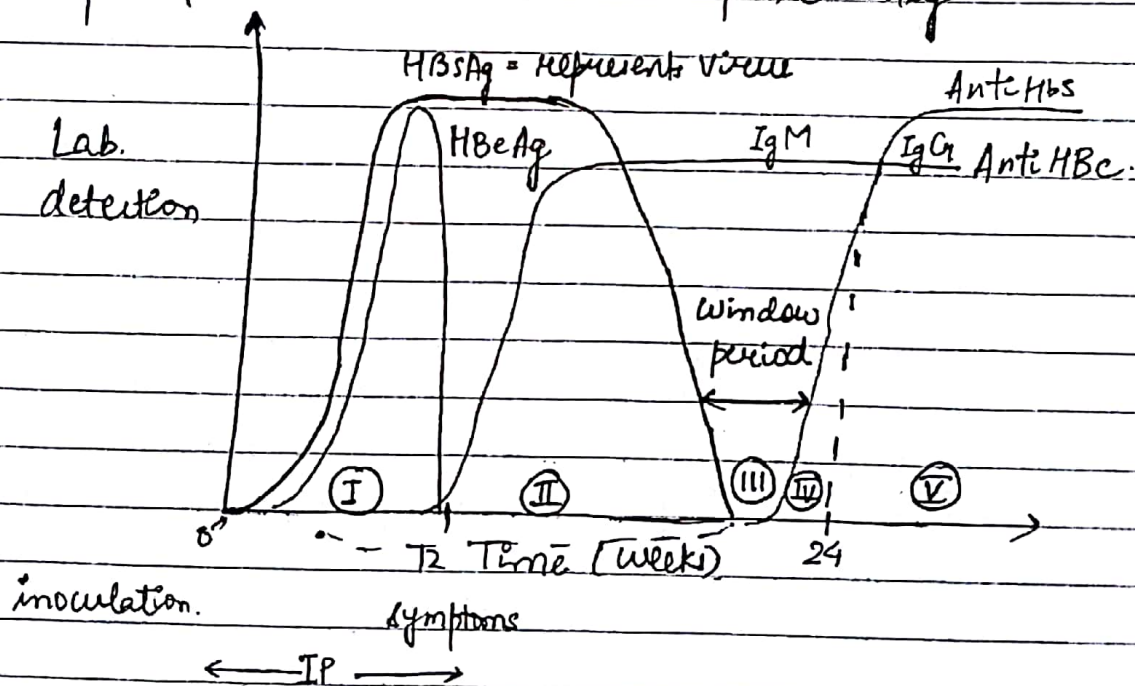 HBsAg = represents virus
Anti Hbs
Lab.
detection
HBeAg
IgM
IgG Anti HBc.
window
period
I
II
III
IV
V
0
12 Time (weeks)
24
inoculation.
symptoms
IP